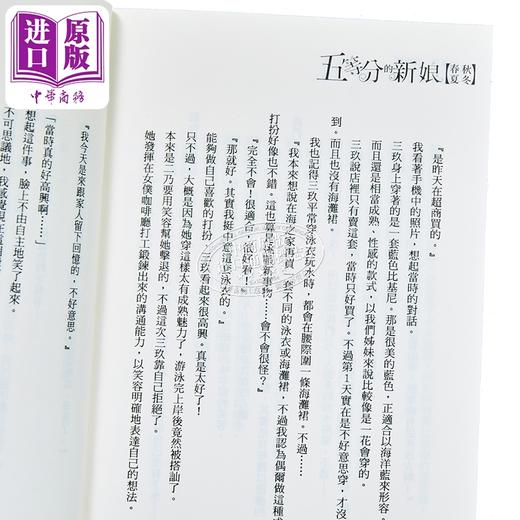 進口
原版
中華商務
五等分的新娘【春夏秋冬】
『是昨天在超商買的。』
我看著手機中的照片，想起當時的對話。
三玖身上穿著的是一套藍色比基尼。那是很美的藍色，正適合以海洋藍來形容。
而且還是相當成熟、性感的款式，以我們姊妹來說比較像是一花會穿的。
三玖說店裡只有賣這套，當時只好買了。不過第1天實在是不好意思穿，才沒
到。而且也沒有海灘裙。
我也記得三玖平常穿泳衣玩水時，都會在腰際圍一條海灘裙。不過……
『我本來想說在海之家再買一套不同的泳衣或海灘裙，不過我認為偶爾做這種
打扮好像也不錯。這也算是新事物……會不會很怪？』
『完全不會！很適合，很好看！』
『那就好。其實我挺中意這套泳衣的。』
能夠做自己喜歡的打扮，三玖看起來很高興。真是太好了！
只不過，大概是因為她穿這樣太有成熟魅力了，游泳完上岸後竟然被搭訕了。
本來是二乃要用笑容幫她擊退的，不過這次三玖靠自己拒絕了。
她發揮在女僕咖啡廳打工鍛鍊出來的溝通能力，以笑容明確地表達自己的想法。
『我今天是來跟家人留下回憶的，不好意思。』
「當時真的好高興啊……」
想起這件事，臉上不由自主地笑了起來。
不可思議地，我感覺現在這個